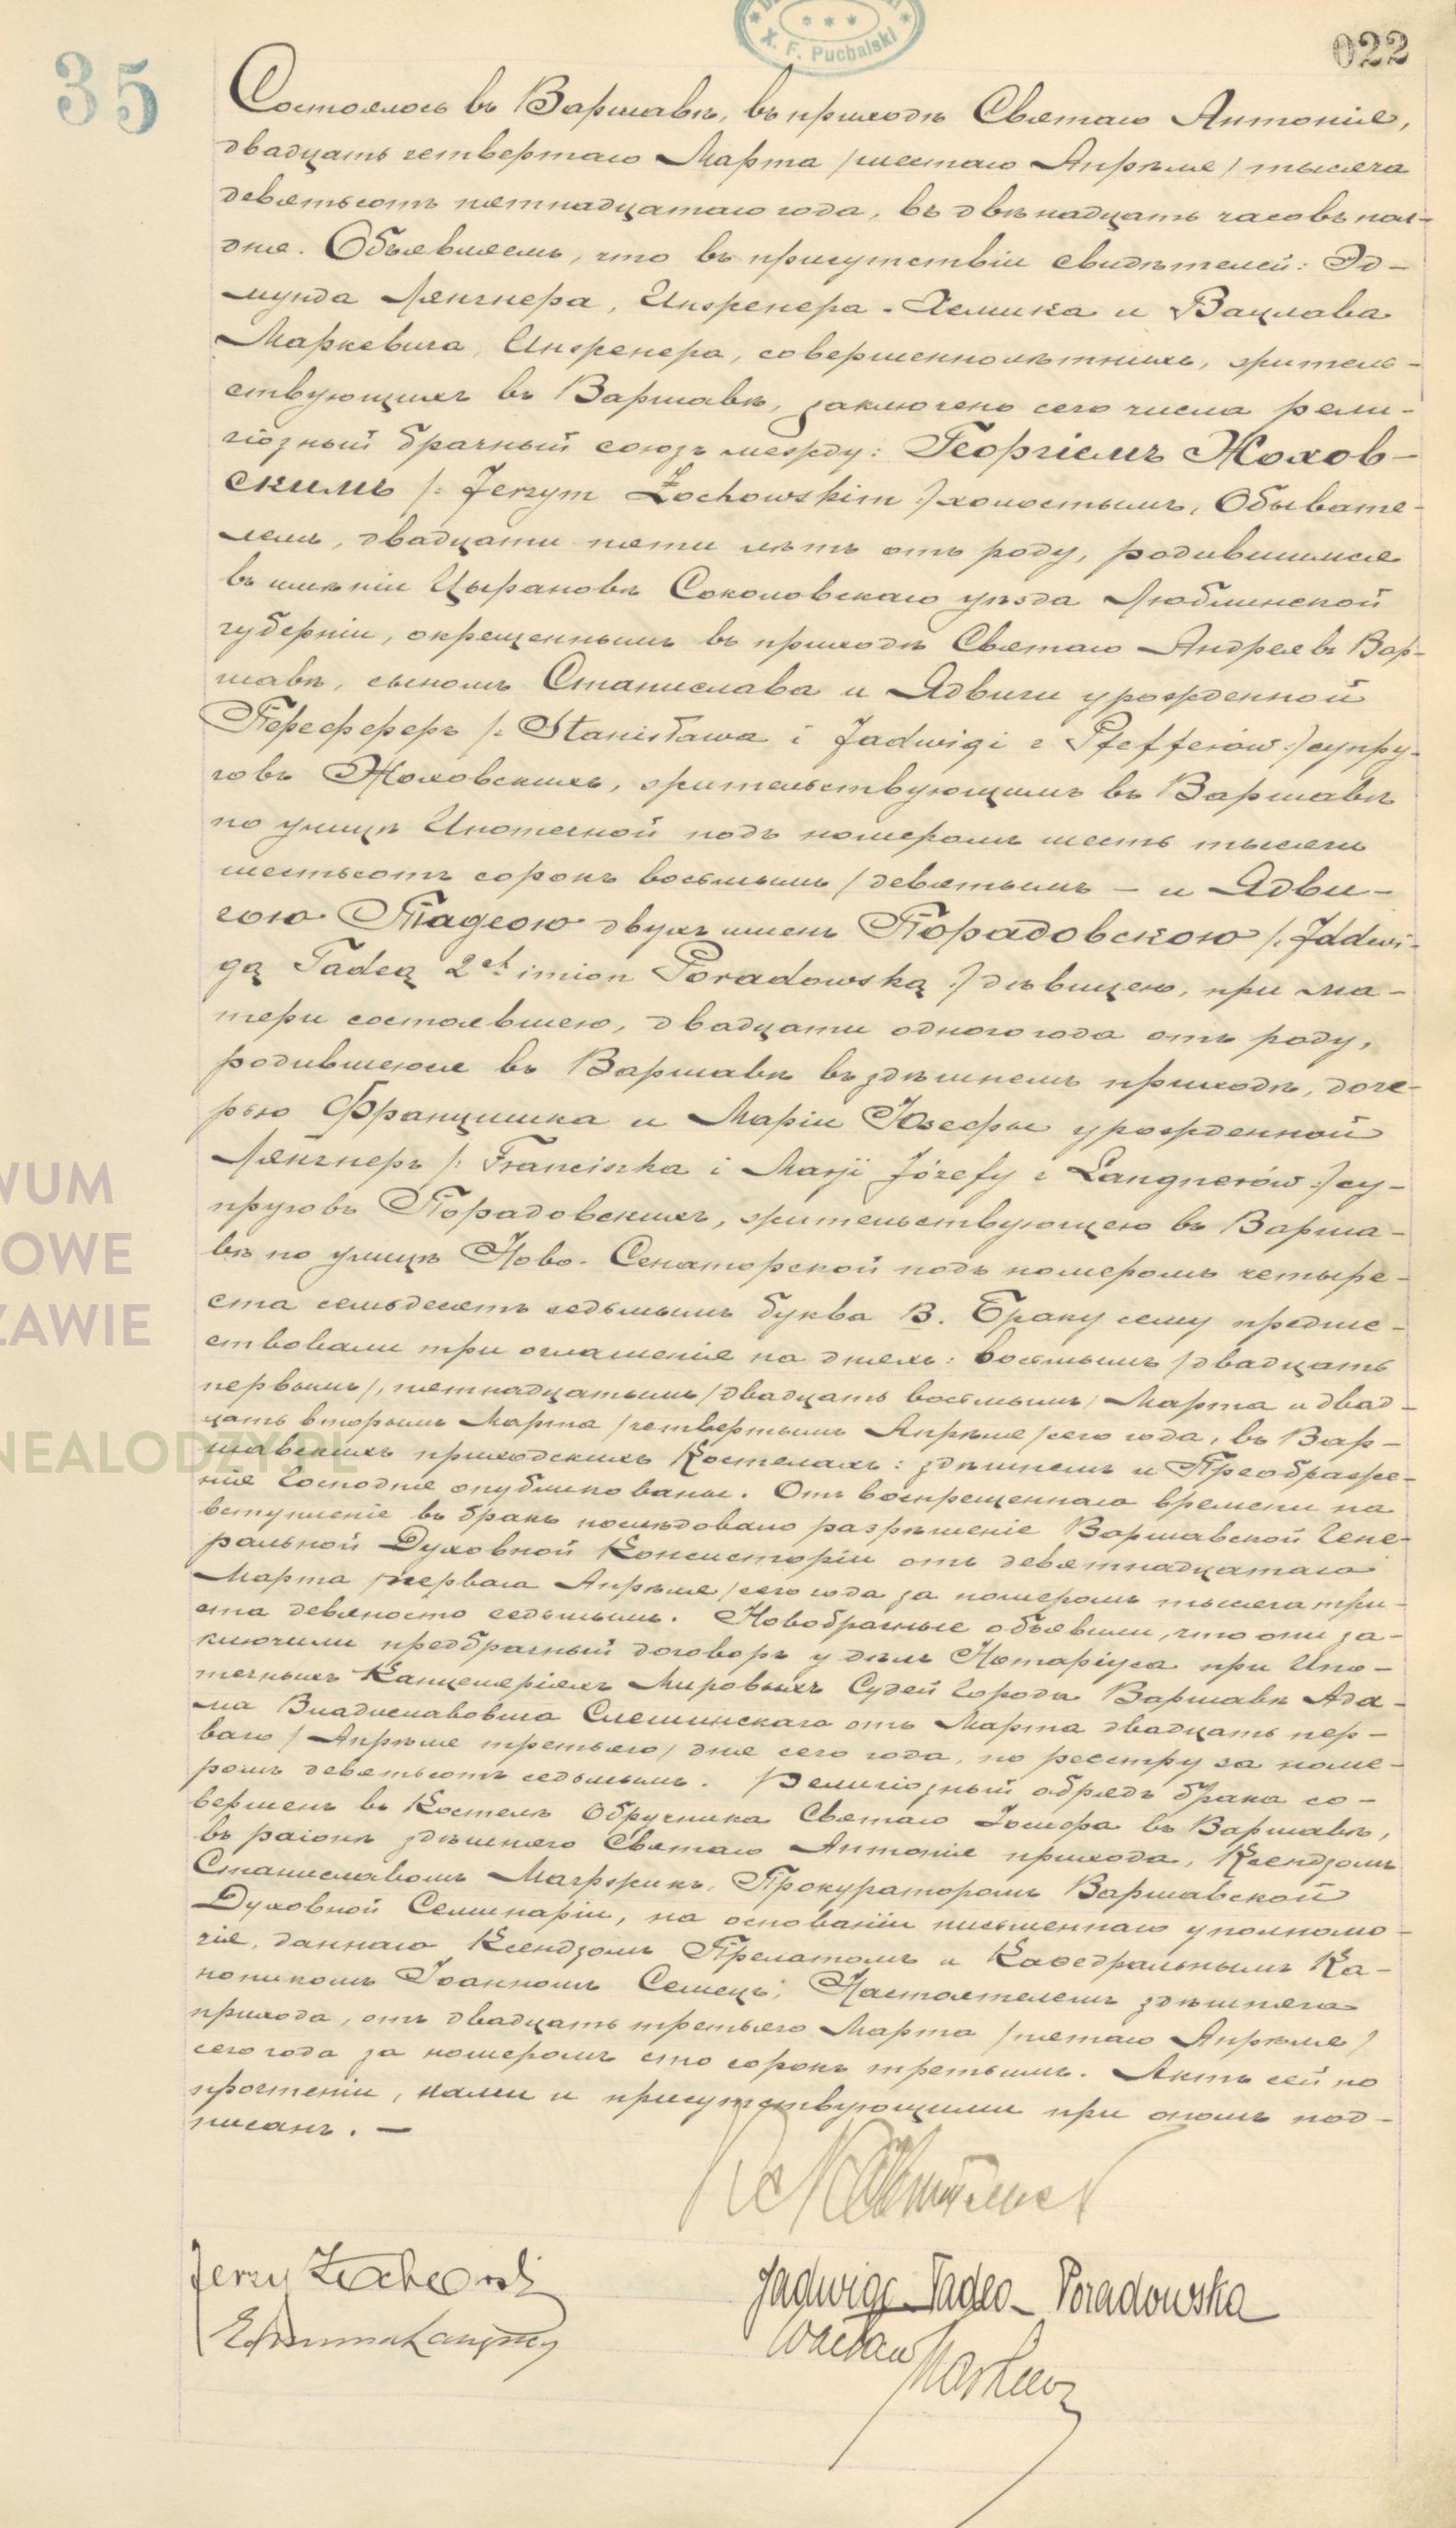 X. F. Puchalski
022
35
Состоялось въ Варшавѣ, въ приходѣ Святаго Антонія,
двадцать четвертаго Марта /шестаго Апрѣля/ тысяча
девятьсотъ пятнадцатаго года, въ двѣнадцать часовъ пол-
дня. Объявляемъ, что въ присутствіи свидѣтелей: Эд-
мунда Лянгнера, Инженера-Химика и Вацлава
Маркевича, Инженера, совершеннолѣтнихъ, житель-
ствующихъ въ Варшавѣ, заключенъ сего числа рели-
гіозный брачный союзъ между: Георгіемъ Жохов-
скимъ /: Jerzym Żochowskim :/ холостымъ, Обывате-
лемъ, двадцати пяти лѣтъ отъ роду, родившимся
въ имѣніи Цырановѣ Соколовскаго уѣзда Люблинской
губерніи, окрещеннымъ въ приходѣ Святаго Андрея въ Вар-
шавѣ, сыномъ Станислава и Ядвиги урожденной
Пфефферъ /: Stanisława i Jadwigi z Pfefferów :/ супру-
говъ Жоховскихъ, жительствующимъ въ Варшавѣ
по улицѣ Ипотечной подъ номеромъ шесть тысячъ
шестьсотъ сорокъ восьмымъ /девятымъ – и Ядви-
гою Тадеою двухъ именъ Порадовскою /: Jadwi-
gą Tadeą 2ch imion Poradowską :/ дѣвицею, при ма-
тери состоявшею, двадцати одного года отъ роду,
родившеюся въ Варшавѣ въ здѣшнемъ приходѣ, доче-
рью Францишка и Маріи Юзефы урожденной
Лянгнеръ /: Franciszka i Marji Józefy z Langnerów :/ су-
пруговъ Порадовскихъ, жительствующею въ Варша-
вѣ по улицѣ Ново-Сенаторской подъ номеромъ четыре-
ста семьдесятъ седьмымъ буква В. Браку сему предше-
ствовали три оглашенія на дняхъ: восьмымъ /двадцать
первымъ/, пятнадцатымъ /двадцать восьмымъ/ Марта и двад-
цать вторымъ Марта /четвертымъ Апрѣля/ сего года, въ Вар-
шавскихъ приходскихъ Костелахъ: здѣшнемъ и Преображе-
нія Господня опубликованы. Отъ воспрещеннаго времени на
вступленіе въ бракъ послѣдовало разрѣшеніе Варшавской Гене-
ральной Духовной Консисторіи отъ девятнадцатаго
Марта /перваго Апрѣля/ сего года за номеромъ тысяча три-
ста девяносто седьмымъ. Новобрачные объявили, что они за-
ключили предбрачный договоръ у дѣлъ Нотаріуса при Ипо-
течныхъ Канцеляріяхъ Мировыхъ Судей Города Варшавы Ада-
ма Владиславовича Слешинскаго отъ Марта двадцать пер-
ваго /Апрѣля третьяго/ дня сего года, по реестру за номе-
ромъ девятьсотъ седьмымъ. Религіозный обрядъ брака со-
вершенъ въ Костелѣ Обручника Святаго Іосифа въ Варшавѣ,
въ районѣ здѣшняго Святаго Антонія прихода, Ксендзомъ
Станиславомъ Мачфжикъ, Прокураторомъ Варшавской
Духовной Семинаріи, на основаніи письменнаго уполномо-
чія, даннаго Ксендзомъ Прелатомъ и Каѳедральнымъ Ка-
ноникомъ Іоанномъ Семецъ, Настоятелемъ здѣшняго
прихода, отъ двадцать третьяго Марта /пятаго Апрѣля/
сего года за номеромъ сто сорокъ третьимъ. Актъ сей по
прочтеніи, нами и присутствующими при ономъ под-
писанъ. –
Jerzy Żochowski
Jadwiga Tadea Poradowska
Edmund Langner
Wacław Markiewicz
WUM
OWE
ZAWIE
NEALODZY.PL